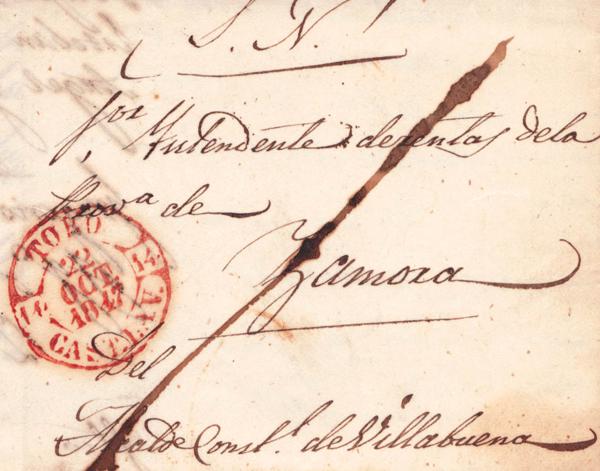 S. N.
Sor Yntendente de rentas de la
Prova de
Zamora
Del
Alcalde Constl. de Villabuena
TORO
22
OCT
1847
14
14
CAST. LA V.